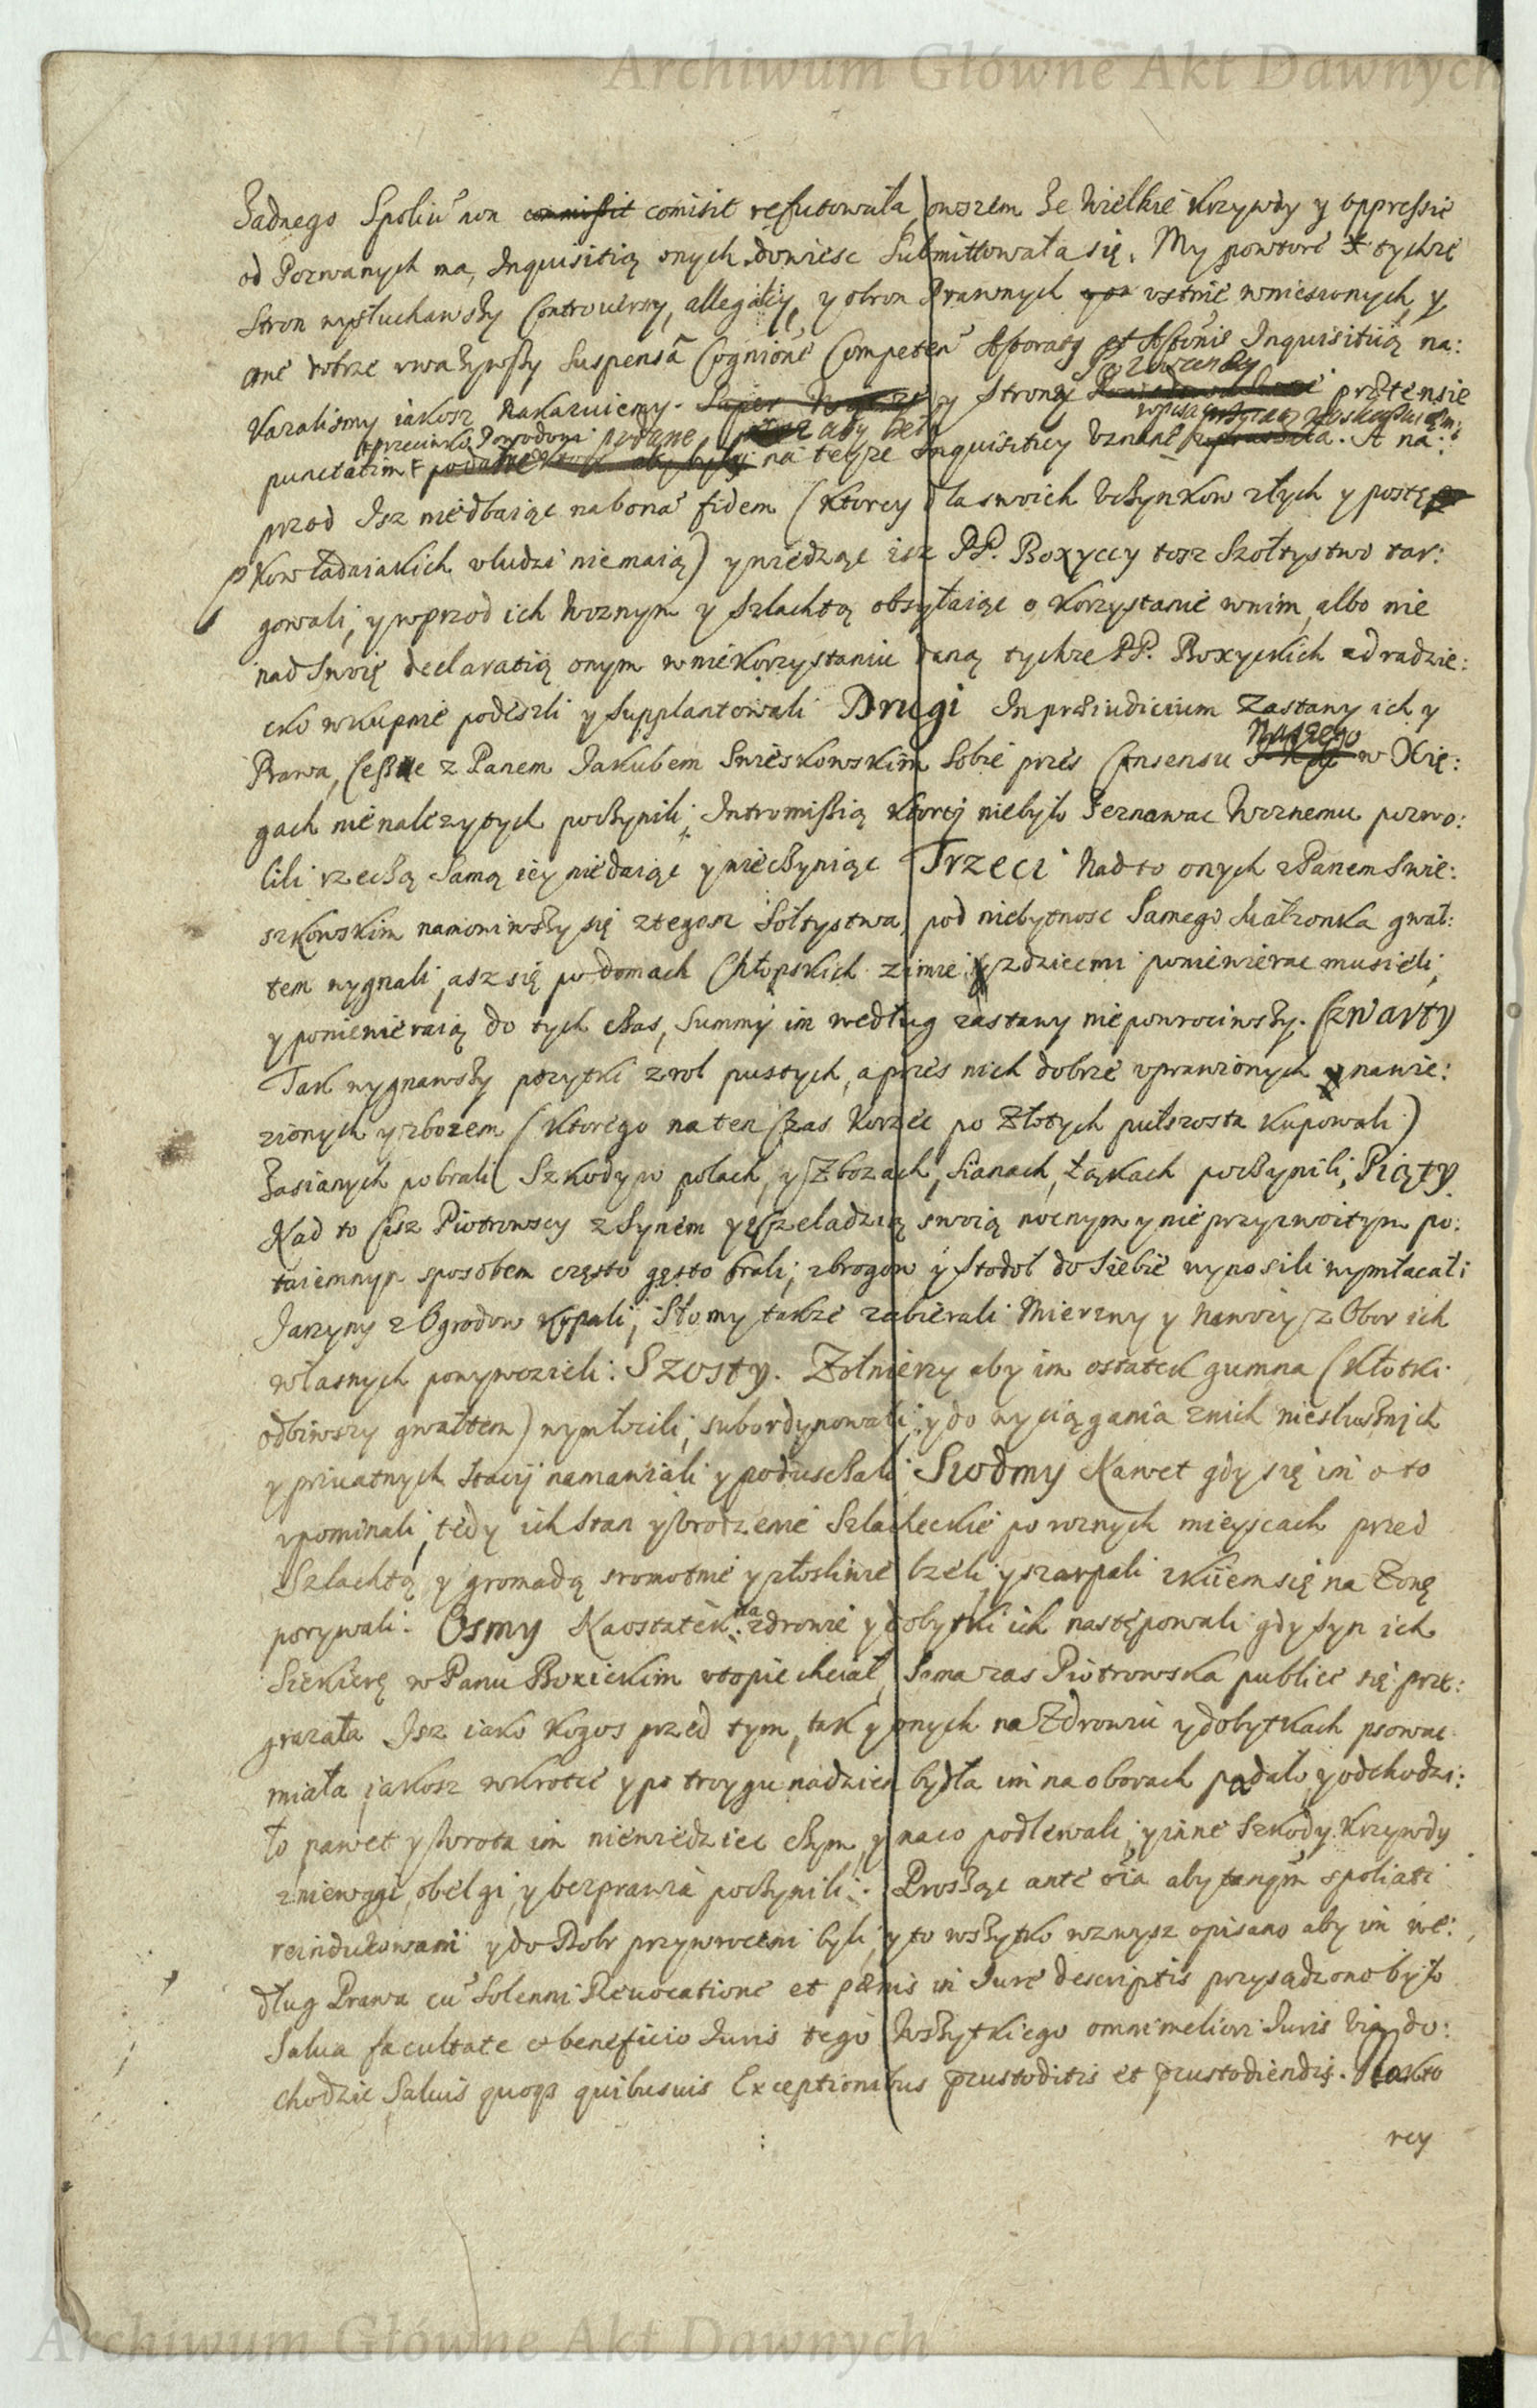 Archiwum Główne Akt Dawnych
Żadnego Spoliū non comisit refutowała, owszem że wielkie krzywdy y oppressie
od Pozwanych ma, Inquisitią onych dowiesc Submittowała się. My powtore tychże
Stron wysłuchawszy Controuersy, allegacij, y obron Prawnych ustnie wniesionych, y
one dobrze uwazywszy Suspensā Cognitione Inquisitią na:
kazalismy iakosz nakazuiemy. y strony prætensie
przeciwko Powodom podane aby
punctatim na teyze Inquisitiey A na:
przod Isz niedbaiąc na bonā fidem (ktorey dla swoich uczynkow złych y postęp
kow ładaiakich u ludzi niemaią) y wiedząc isz PP. Boxyccy tosz Szołtystwo tar:
gowali, y wprzod ich woznym y szlachtą obsyłaiąc o korzystanie w nim, albo nie
nad swoię declaratią onym w niekorzystaniu daną tychze PP. Boxyckich zdradzie:
cko w kupnie podeszli y supplantowali Drugi In præiudicium Zastawy ich y
Naszego
Prawa, Cessie z Panem Jakubem Swieskowskim Sobie przes Consensu w Xię:
gach nienalezytych poczynili, Intromissią ktorey niebyło zeznawac woznemu pozwo:
lili rzeczą samą iey niedaiąc y nieczyniąc Trzeci Nad to onych z Panem Swie:
szkowskim namowiwszy się z tegosz Sołtystwa, pod niebytnosc samego Małzonka gwał:
tem wygnali, asz się po domach Chłopskich zimie z dziecmi poniewierac musieli,
y poniewieraią do tych czas, summy im według zastawy nie powrociwszy. Czwarty
Tak wygnawszy pozytki z rol pustych, a przes nich dobrze uprawionych y nawie:
zionych y zbozem (ktorego na ten czas korzec po Złotych pułszosta kupowali)
Zasianych pobrali Szkody w polach, y Zbozach, sianach, Łąkach poczynili, Piąty
Nad to cisz Piotrowscy z Synem y czeladzią swoią nocnym y nieprzyzwoitym po:
taiemnym sposobem często gęsto brali, z brogow y stodoł do siebie wynosili wymłacali
Jarzyny z Ogrodow kopali, Słomy takze zabierali Mierzwy y Nawozy z Obor ich
własnych powywozieli: Szosty. Zołnierzy aby im ostatek gumna (kłotki
odbiwszy gwałtem) wymłocili, subordynowali, y do wyciągania z nich niesłusznych
y priuatnych stacij namawiali y poduszczali Siodmy Nawet gdy się im o to
upominali, tedy ich stan y urodzenie Szlacheckie po roznych mieyscach przed
Szlachtą y gromadą sromotnie y złosliwie lzeli, y szarpali z kiiem się na Zonę
porywali. Osmy Naostatek na zdrowie y dobytki ich następowali gdy syn ich
Siekierę w Panu Boxickim utopic chciał, Sama zas Piotrowska publice się prze:
grazała Isz iako kogos przed tym, tak y onych na Zdrowiu y dobytkach psowac
miała, iakosz wkrotce y po troygu nadzien bydła im na oborach padało, y odchodzi:
ło nawet y wrota im niewiedziec czym, y na co podlewali, y inne Szkody Krzywdy
zniewagi, obelgi, y bezprawia poczynili. Prosząc ante oīa aby tanqm̄ spoliati
reindukowani y do Dobr przywroceni byli, y to wszytko wzwysz opisano aby im we:
dług Prawa cū solenni Reuocatione et pœnis in Iure descriptis przysądzono było
Salua facultate et beneficio Iuris tego wszytkiego omni meliori Iuris via do:
chodzic Saluis quoqз quibusuis Exceptionibus præcustoditis et præcustodiendis. Na kto
rey
Archiwum Główne Akt Dawnych